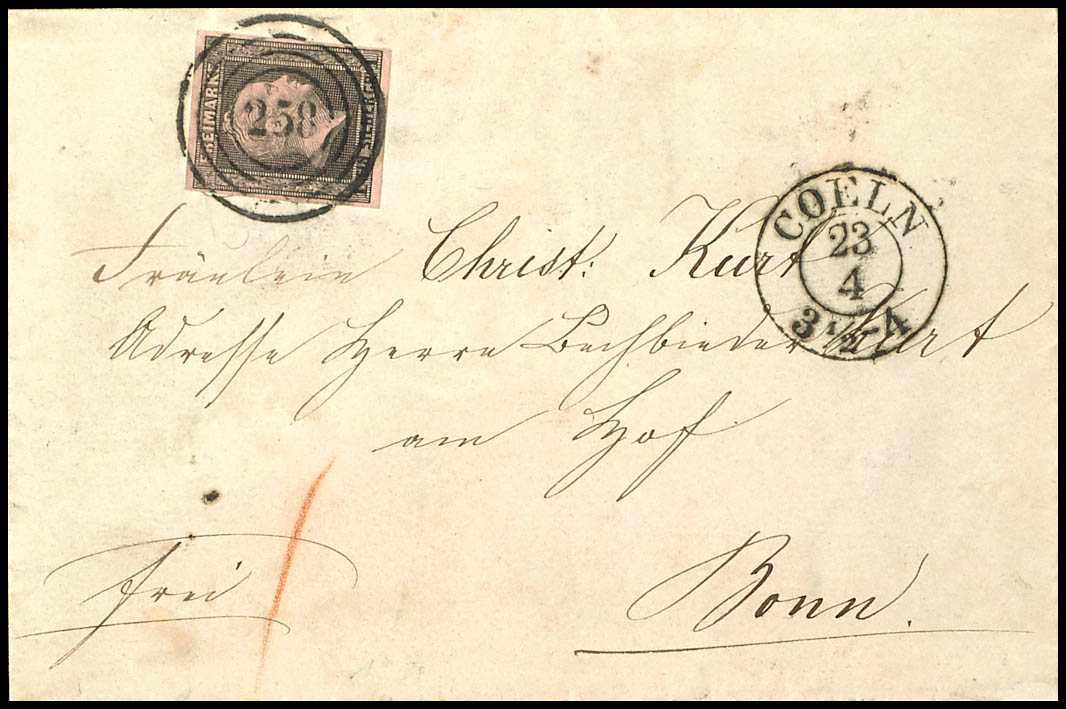 FREIMARKE
258
COELN
23
4
3 1/2-4
Fräulein Christ: Kurt
Adresse Herrn Buchbinder Kurt
am Hof
frei
Bonn.